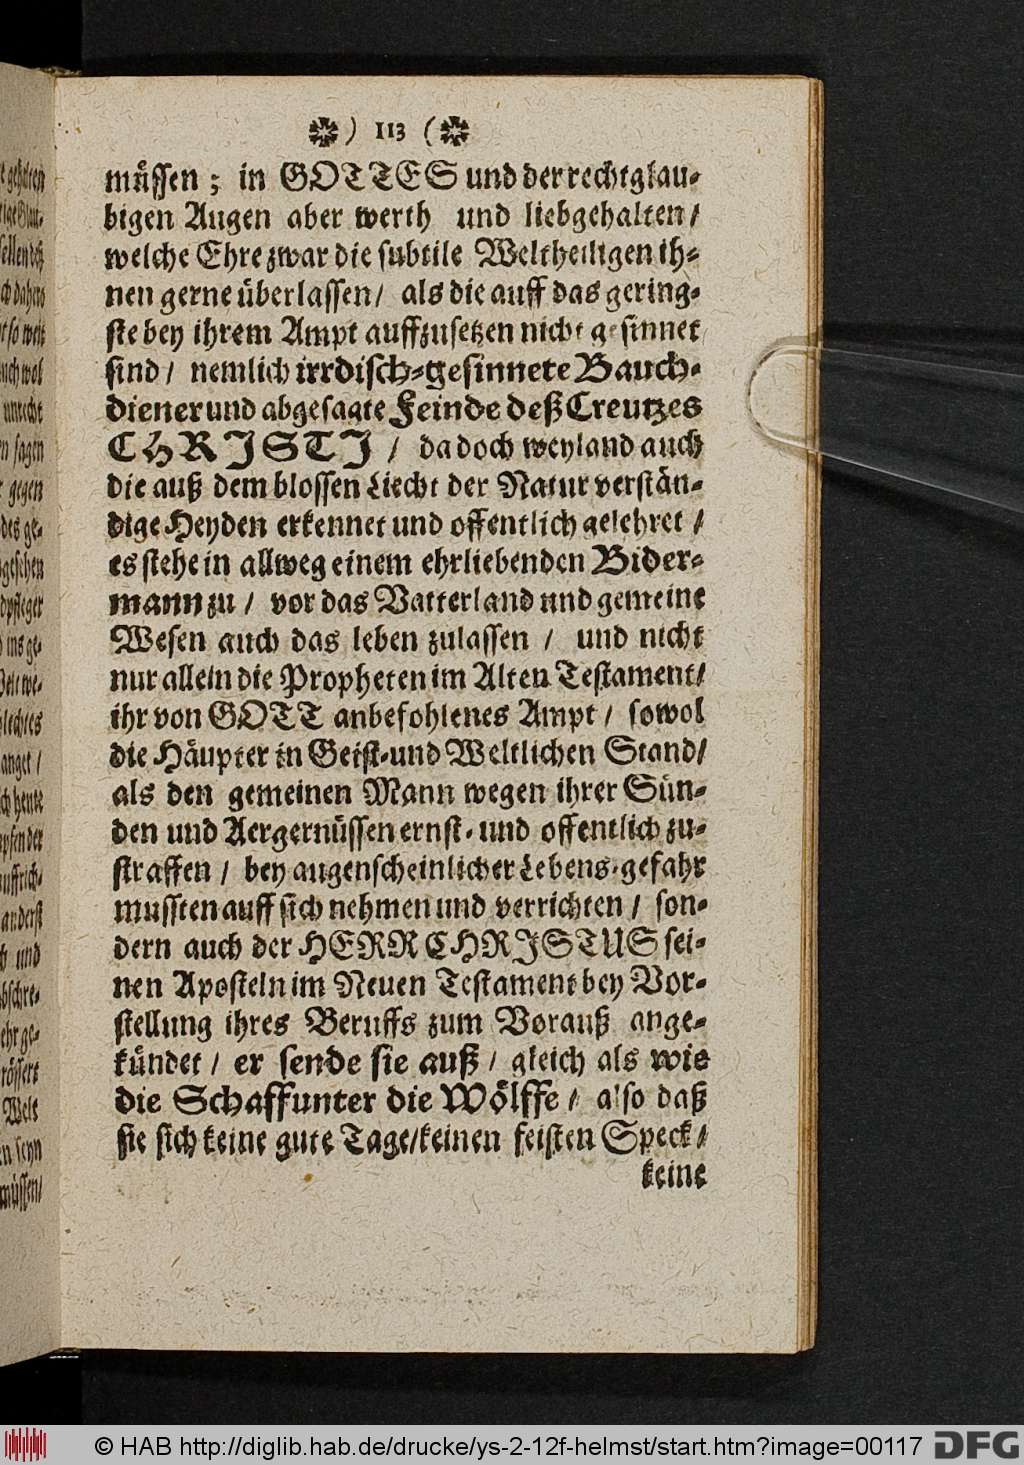 ) 113 (
müssen; in GOTTES und der rechtglau-
bigen Augen aber werth und liebgehalten/
welche Ehre zwar die subtile Weltheiligen ih-
nen gerne überlassen/ als die auff das gering-
ste bey ihrem Ampt auffzusetzen nicht gesinnet
sind/ nemlich irrdisch-gesinnete Bauch-
diener und abgesagte Feinde deß Creutzes
CHRISTI/ da doch weyland auch
die auß dem blossen Liecht der Natur verstän-
dige Heyden erkennet und offentlich gelehret/
es stehe in allweg einem ehrliebenden Bider-
mann zu/ vor das Vatterland und gemeine
Wesen auch das leben zulassen/ und nicht
nur allein die Propheten im Alten Testament/
ihr von GOTT anbefohlenes Ampt/ sowol
die Häupter in Geist-und Weltlichen Stand/
als den gemeinen Mann wegen ihrer Sün-
den und Aergernüssen ernst-und offentlich zu-
straffen/ bey augenscheinlicher Lebens-gefahr
mussten auff sich nehmen und verrichten/ son-
dern auch der HERR CHRISTUS sei-
nen Aposteln im Neuen Testament bey Vor-
stellung ihres Beruffs zum Vorauß ange-
kündet/ er sende sie auß/ gleich als wie
die Schaff unter die Wölffe/ also daß
sie sich keine gute Tage/ keinen feisten Speck/
keine
© HAB http://diglib.hab.de/drucke/ys-2-12f-helmst/start.htm?image=00117 DFG